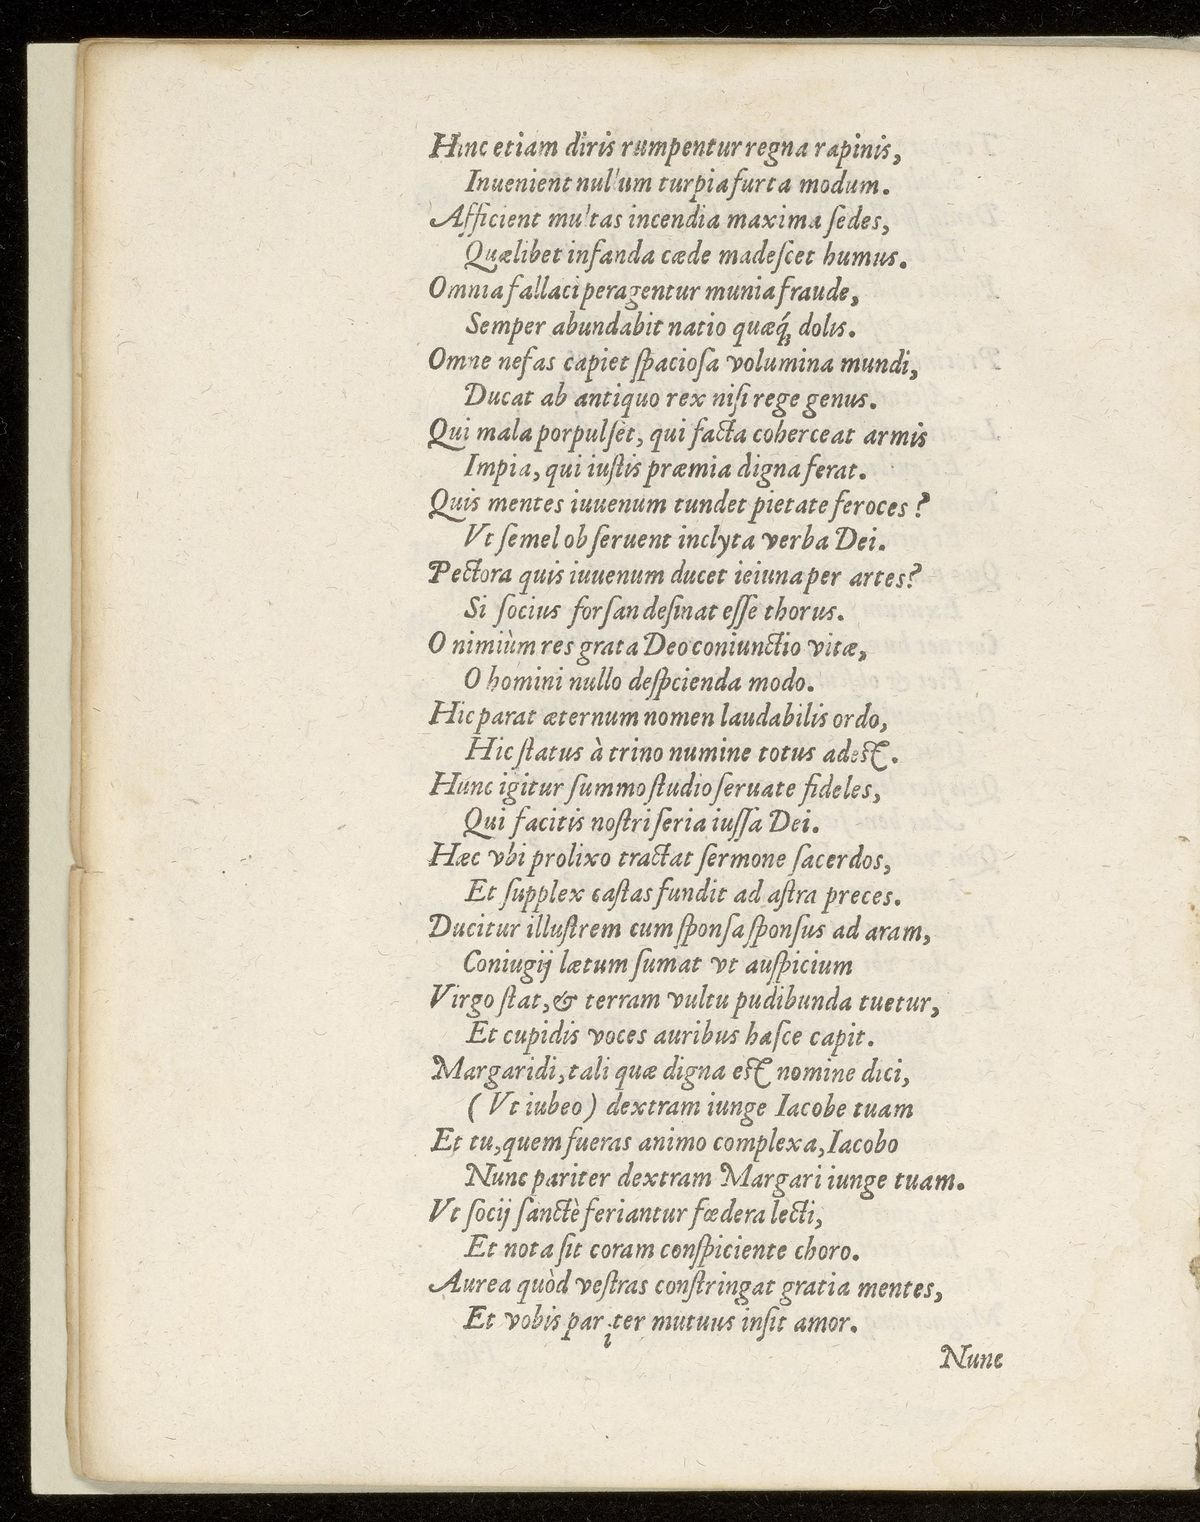 Hinc etiam diris rumpentur regna rapinis,
Inuenient nullum turpia furta modum.
Afficient multas incendia maxima ſedes,
Quælibet infanda cæde madeſcet humus.
Omnia fallaci peragentur munia fraude,
Semper abundabit natio quæq́ꝫ dolis.
Omne nefas capiet ſpacioſa volumina mundi,
Ducat ab antiquo rex niſi rege genus.
Qui mala porpulſet, qui facta coherceat armis
Impia, qui iuſtis præmia digna ferat.
Quis mentes iuuenum tundet pietate feroces?
Vt ſemel obſeruent inclyta verba Dei.
Pectora quis iuuenum ducet ieiuna per artes?
Si ſocius forſan deſinat eſſe thorus.
O nimiùm res grata Deo coniunctio vitæ,
O homini nullo deſpcienda modo.
Hic parat æternum nomen laudabilis ordo,
Hic ſtatus à trino numine totus adeſt.
Hunc igitur ſummo ſtudio ſeruate fideles,
Qui facitis noſtri ſeria iuſſa Dei.
Hæc vbi prolixo tractat ſermone ſacerdos,
Et ſupplex caſtas fundit ad aſtra preces.
Ducitur illuſtrem cum ſponſa ſponſus ad aram,
Coniugij lætum ſumat vt auſpicium
Virgo ſtat, & terram vultu pudibunda tuetur,
Et cupidis voces auribus haſce capit.
Margaridi, tali quæ digna eſt nomine dici,
(Vt iubeo) dextram iunge Iacobe tuam
Et tu, quem fueras animo complexa, Iacobo
Nunc pariter dextram Margari iunge tuam.
Vt ſocij ſanctè feriantur fœdera lecti,
Et nota ſit coram conſpiciente choro.
Aurea quòd veſtras conſtringat gratia mentes,
Et vobis pariter mutuus inſit amor.
Nunc